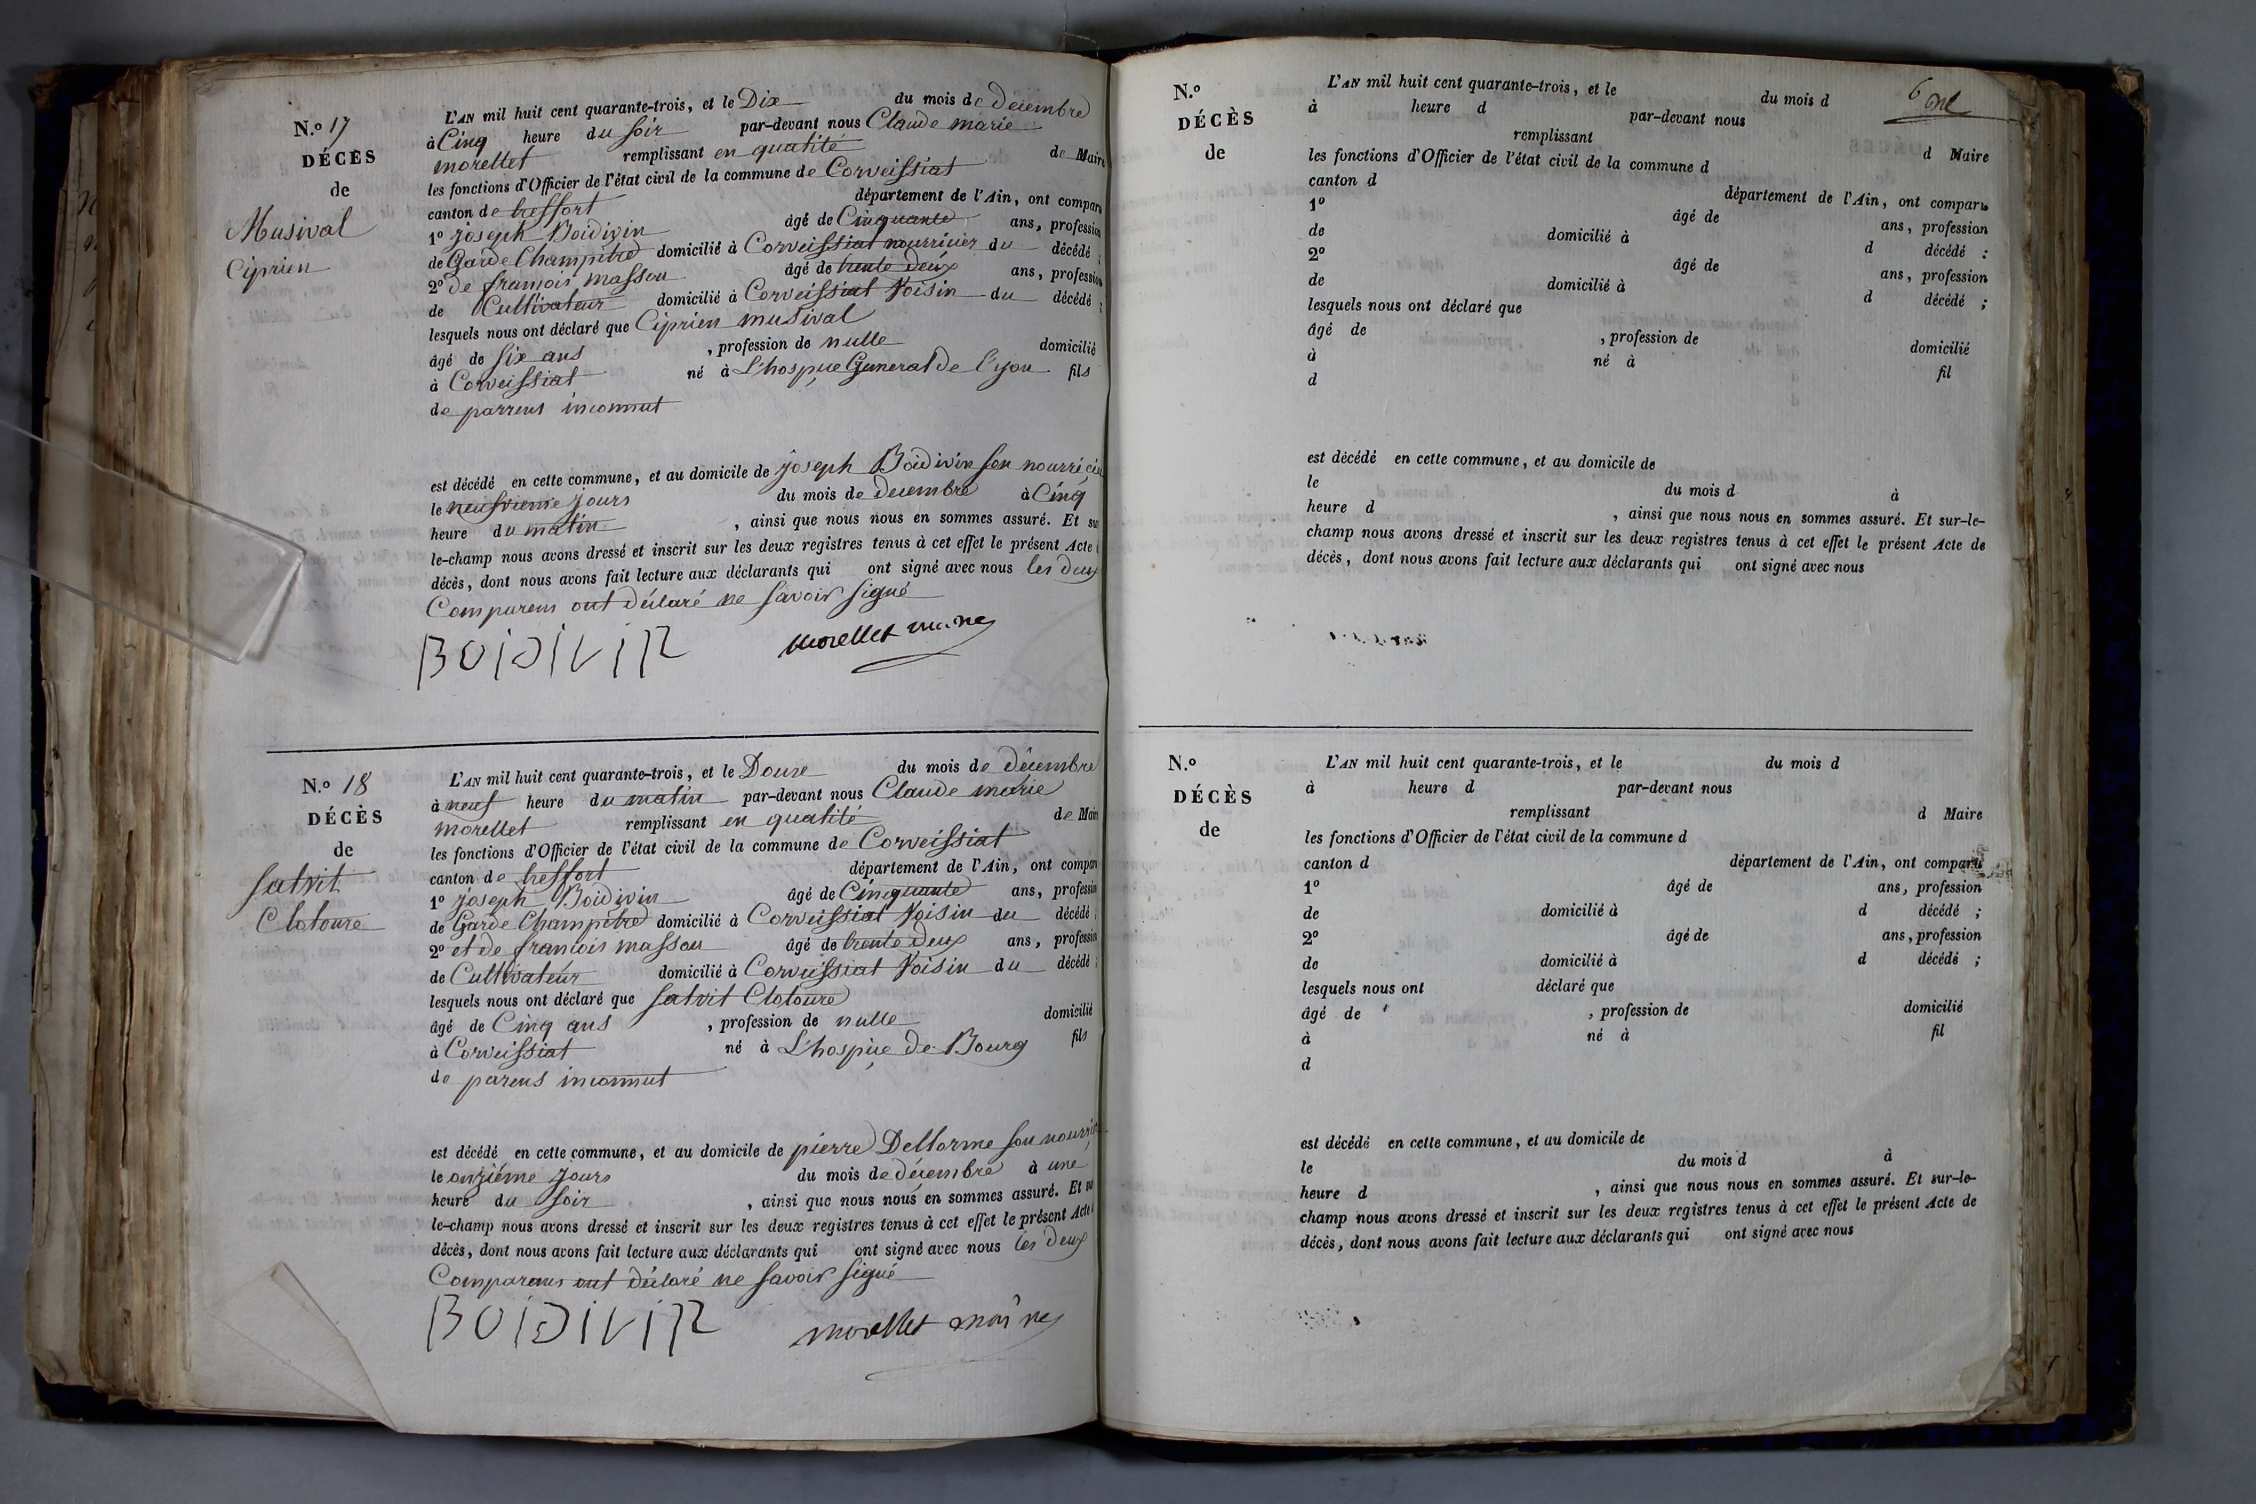 N.º 17
DÉCÈS
de
Musival
Ciprien
L'AN mil huit cent quarante-trois, et le Dix du mois de decembre
à Cinq heure du soir par-devant nous Claude marie
morellet remplissant en qualité de Maire
les fonctions d'Officier de l'état civil de la commune de Corveissiat
canton de treffort département de l'Ain, ont comparu
1º joseph Boidivin âgé de Cinquante ans, profession
de Garde Champitre domicilié à Corveissiat nourricier du décédé ;
2º de francois masson âgé de trente deux ans, profession
de Cultivateur domicilié à Corveissiat Voisin du décédé ;
lesquels nous ont déclaré que Ciprien musival
âgé de six ans , profession de nulle domicilié
à Corveissiat né à L'hospice General de Lyon fils
de parrens inconnut
est décédé en cette commune, et au domicile de joseph Boidivin son
le neufvieme jours du mois de decembre à Cinq
heure du matin , ainsi que nous nous en sommes assuré. Et sur
le-champ nous avons dressé et inscrit sur les deux registres tenus à cet effet le présent Acte
décès, dont nous avons fait lecture aux déclarants qui ont signé avec nous les deux
Comparens ont déclaré ne savoir signé
BOIDIVIN morellet maire
N.º 18
DÉCÈS
de
salvit
Clotoure
L'AN mil huit cent quarante-trois, et le Douze du mois de décembre
à neuf heure du matin par-devant nous Claude marie
morellet remplissant en qualité de Maire
les fonctions d'Officier de l'état civil de la commune de Corveissiat
canton de treffort département de l'Ain, ont comparu
1º joseph Boidivin âgé de Cinquante ans, profession
de Garde Champitre domicilié à Corveissiat Voisin du décédé ;
2º et de francois masson âgé de trente deux ans, profession
de Cultivateur domicilié à Corveissiat Voisin du décédé ;
lesquels nous ont déclaré que salvit Clotoure
âgé de Cinq ans , profession de nulle domicilié
à Corveissiat né à L'hospice de Bourg fils
de parens inconnut
est décédé en cette commune, et au domicile de pierre Dellorme son
le onzième jours du mois de décembre à une
heure du soir , ainsi que nous nous en sommes assuré. Et
le-champ nous avons dressé et inscrit sur les deux registres tenus à cet effet le présent Acte
décès, dont nous avons fait lecture aux déclarants qui ont signé avec nous les deux
Comparans ont déclaré ne savoir signé
BOIDIVIN morellet maire
6
N.º
DÉCÈS
de
L'AN mil huit cent quarante-trois, et le du mois d
à heure d par-devant nous
remplissant d Maire
les fonctions d'Officier de l'état civil de la commune d
canton d département de l'Ain, ont comparu
1º âgé de ans, profession
de domicilié à d décédé :
2º âgé de ans, profession
de domicilié à d décédé ;
lesquels nous ont déclaré que
âgé de , profession de domicilié
à né à fil
d
est décédé en cette commune, et au domicile de
le du mois d à
heure d , ainsi que nous nous en sommes assuré. Et sur-le-
champ nous avons dressé et inscrit sur les deux registres tenus à cet effet le présent Acte de
décès, dont nous avons fait lecture aux déclarants qui ont signé avec nous
N.º
DÉCÈS
de
L'AN mil huit cent quarante-trois, et le du mois d
à heure d par-devant nous
remplissant d Maire
les fonctions d'Officier de l'état civil de la commune d
canton d département de l'Ain, ont comparu
1º âgé de ans, profession
de domicilié à d décédé ;
2º âgé de ans, profession
de domicilié à d décédé ;
lesquels nous ont déclaré que
âgé de , profession de domicilié
à né à fil
d
est décédé en cette commune, et au domicile de
le du mois d à
heure d , ainsi que nous nous en sommes assuré. Et sur-le-
champ nous avons dressé et inscrit sur les deux registres tenus à cet effet le présent Acte de
décès, dont nous avons fait lecture aux déclarants qui ont signé avec nous